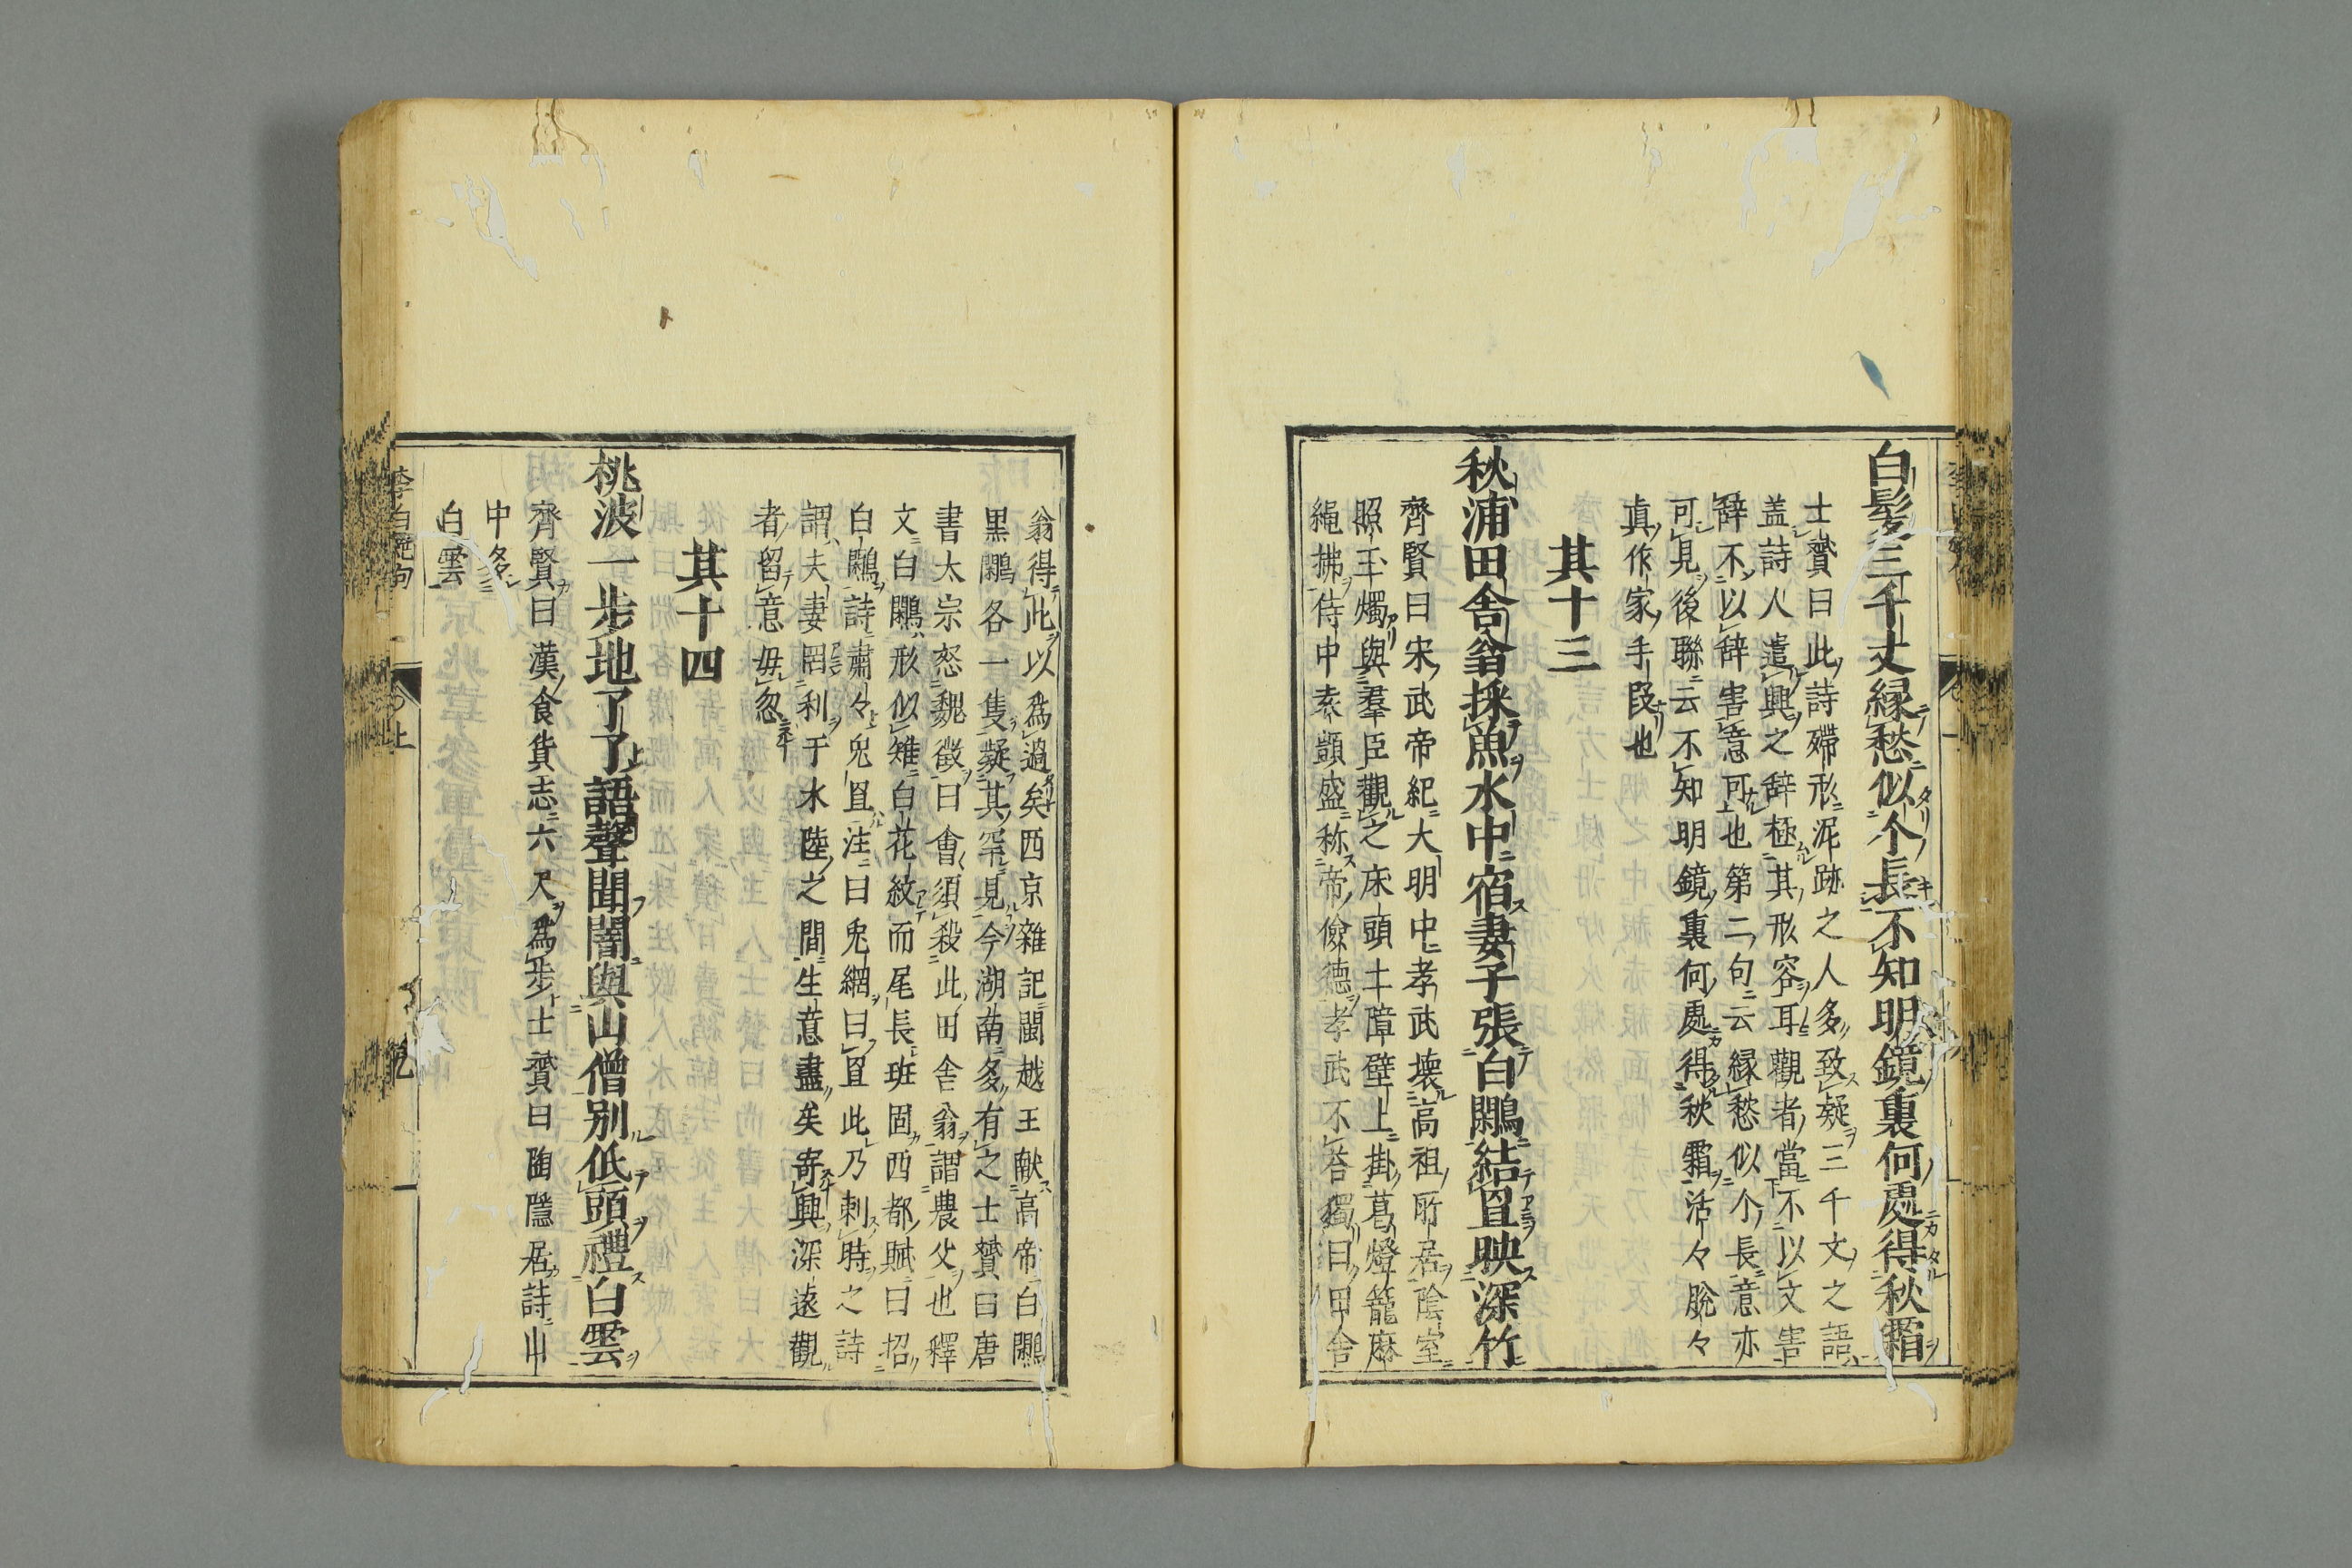 白髪三千丈縁愁似个長不知明鏡裏何處得秋霜
士贇曰此詩殢形泥跡之人多致疑三千丈之語
盖詩人遣興之辞極其形容耳觀者當不以文害
辞不以辞害意可也第二句云縁愁似个長意亦
可見後聯云不知明鏡裏何處得秋霜活々脱々
真作家手段也
其十三
秋浦田舎翁採魚水中宿妻子張白鷴結罝映深竹
齊賢曰宋武帝紀大明中孝武壊高祖所居陰室
照玉燭與羣臣觀之床頭土障壁上掛葛燈籠麻
縄拂侍中袁顗盛称帝儉德孝武不荅獨曰田舎
翁得此以為過矣西京雜記閩越王献高帝白鷴
黒鷴各一隻凝其罕見今湖南多有之士贇曰唐
書太宗怒魏徴曰會須殺此田舎翁謂農父也釋
文白鷴形似雉白花紋而尾長班固西都賦曰招
白鷴詩肅々兔罝注曰兔網曰罝此乃刺時之詩
謂夫妻罔利于水陸之間生意盡矣寄興深遠觀
者留意毋忽
其十四
桃波一歩地了了語聲聞闇與山僧別低頭禮白雲
齊賢曰漢食貨志六尺為歩士贇曰陶隱居詩山
中多
白雲
李白絶句
上